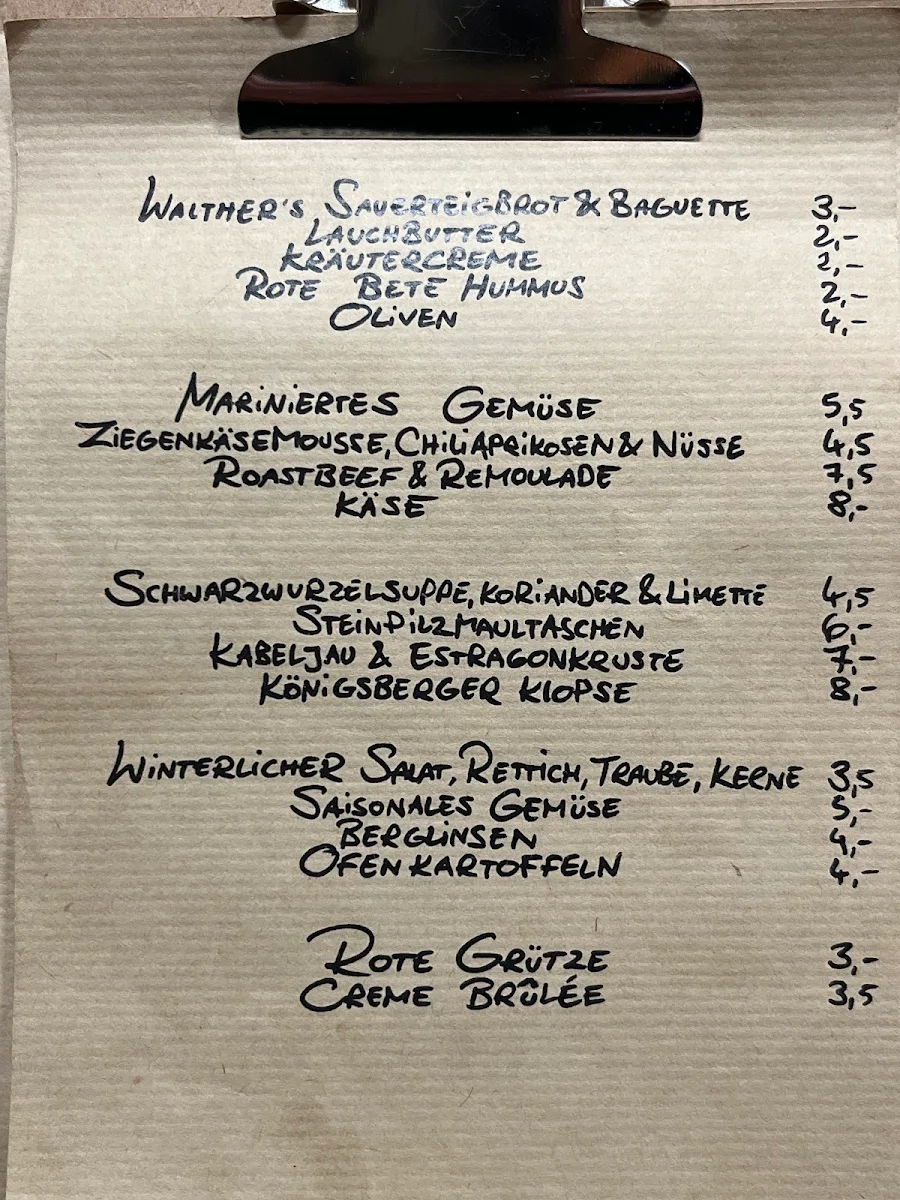 Walther's Sauerteigbrot & Baguette 3,-
Lauchbutter 2,-
Kräutercreme 2,-
Rote Bete Hummus 2,-
Oliven 4,-
Mariniertes Gemüse 5,5
Ziegenkäsemousse, Chiliaprikosen & Nüsse 4,5
Roastbeef & Remoulade 7,5
Käse 8,-
Schwarzwurzelsuppe, Koriander & Limette 4,5
Steinpilzmaultaschen 6,-
Kabeljau & Estragonkruste 7,-
Königsberger Klopse 8,-
Winterlicher Salat, Rettich, Traube, Kerne 3,5
Saisonales Gemüse 5,-
Berglinsen 4,-
Ofenkartoffeln 4,-
Rote Grütze 3,-
Creme Brûlée 3,5